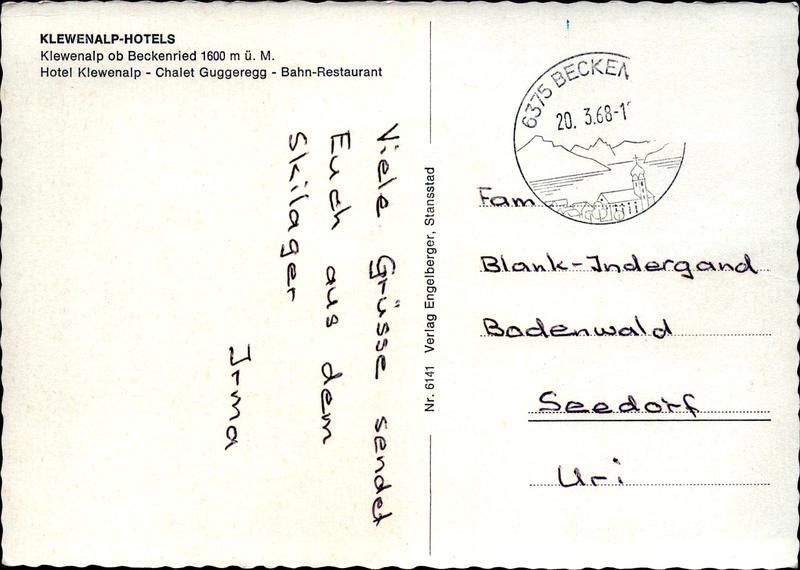 KLEWENALP-HOTELS
Klewenalp ob Beckenried 1600 m ü. M.
Hotel Klewenalp - Chalet Guggeregg - Bahn-Restaurant
Viele Grüsse sendet
Euch aus dem
Skilager
Irma
Nr. 6141 Verlag Engelberger, Stansstad
6375 BECKEN
20. 3.68-1
Fam
Blank-Indergand
Bodenwald
Seedorf
Uri